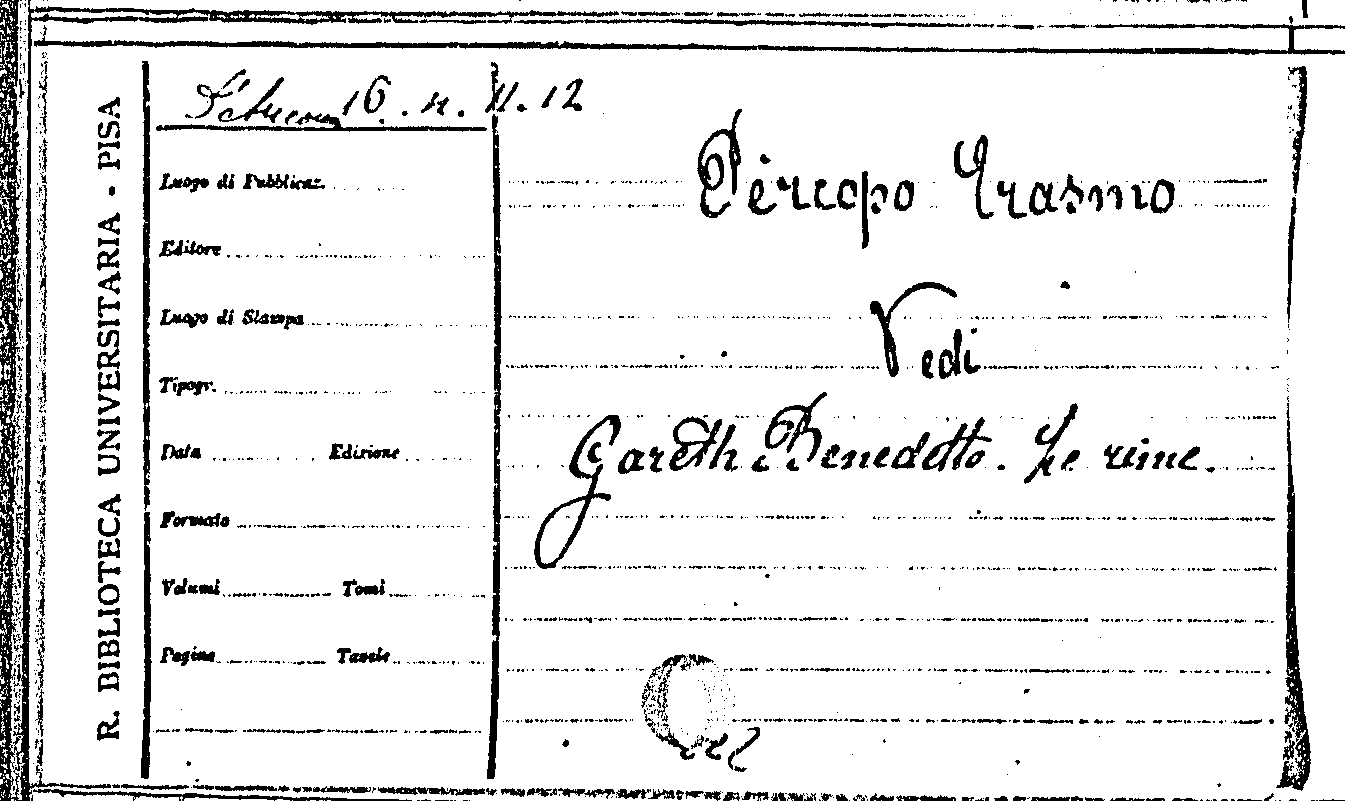 R. BIBLIOTECA UNIVERSITARIA - PISA
16. n. 11. 12
Luogo di Pubblicaz.
Editore
Luogo di Stampa
Tipogr.
Data Edizione
Formato
Volumi Tomi
Pagine Tavole
Pèrcopo Erasmo
Vedi
Gareth Benedetto. Le rime.